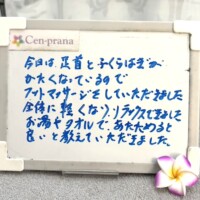 Cen-prana
今日は、足首とふくらはぎが
かたくなっているので
フットマッサージをしていただきました
全体に軽くなり、リラックスできました
お湯やタオルで、あたためると
良いと教えていただきました。